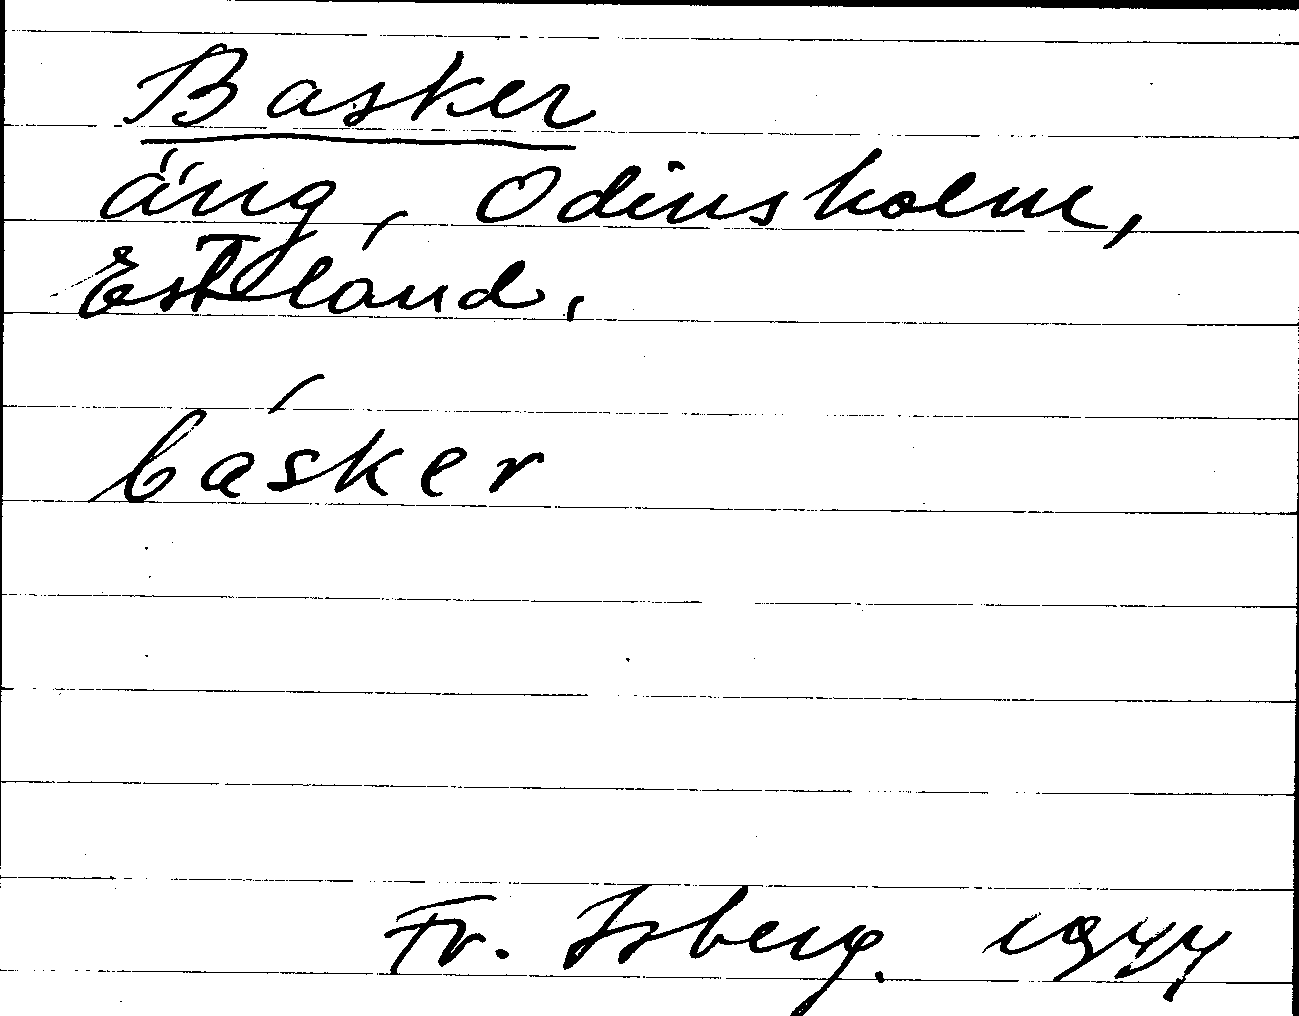 Basker
äng, Odinsholm,
Estland.
básker
Fr. Isberg. 1944